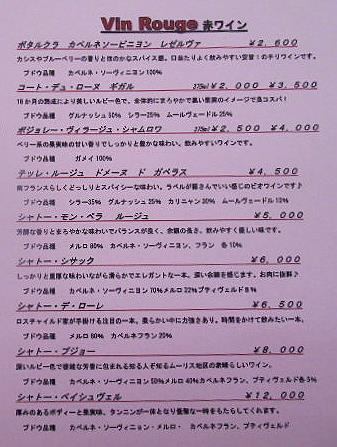 Vin Rouge 赤ワイン
ボタルクラ カベルネソービニヨン レゼルヴァ ¥2,600
カシスやブルーベリーの香りとほのかなスパイス感。口当たりよく飲みやすい安旨!のチリワインです。
ブドウ品種 カベルネ・ソーヴィニヨン100%
コート・デュ・ローヌ ギガル 375ml¥2,000 ¥3,500
18か月の熟成により美しいルビー色で、全体的にまろやかで黒い果実のイメージで良コスパ!
ブドウ品種 グルナッシュ50% シラー25% ムールヴェードル25%
ボジョレー・ヴィラージュ・シャムロワ 375ml¥2,500 ¥4,000
ベリー系の果実味の甘い香りでしっかりと豊かな味わい。飲みやすいワインです。
ブドウ品種 ガメイ100%
テッレ・ルージュ ドメーヌ ド ガベラス ¥4,500
南フランスらしくどっしりとスパイシーな味わい。ラベルが雛さんでいい感じのビオワインです♪
ブドウ品種 シラー35% グルナッシュ25% カリニャン30% ムールヴェードル10%
シャトー・モン・ペラ ルージュ ¥5,000
芳醇な香りとまろやかな味わいでバランスが良く、余韻の長さ。飲みやすく優しい味です。
ブドウ品種 メルロ80% カベルネ・ソーヴィニヨン、フラン 各10%
シャトー・シサック ¥6,000
しっかりと重厚な味わいながら滑らかでエレガントな一本。深い余韻を感じます。お肉に抜群♪
ブドウ品種 カベルネ・ソーヴィニヨン70%メルロ22%プティヴェルド8%
シャトー・デ・ローレ ¥6,500
ロスチャイルド家が手掛ける注目の一本。柔らかい中に力強さあり。時間をかけて飲みたい一本。
ブドウ品種 メルロ80% カベルネフラン20%
シャトー・プジョー ¥8,000
深いルビー色で複雑な芳香に包まれる知る人ぞ知るムーリス地区の素晴らしいワイン。
ブドウ品種 カベルネ・ソーヴィニヨン50%メルロ40%カベルネフラン、プティヴェルド各5%
シャトー・ベイシュヴェル ¥12,000
厚みのあるボディーと果実味、タンニンが一体となり優雅な一時をもたらしてくれます。
ブドウ品種 カベルネ・ソーヴィニョン・メルロ・ カベルネフラン、プティヴェルド